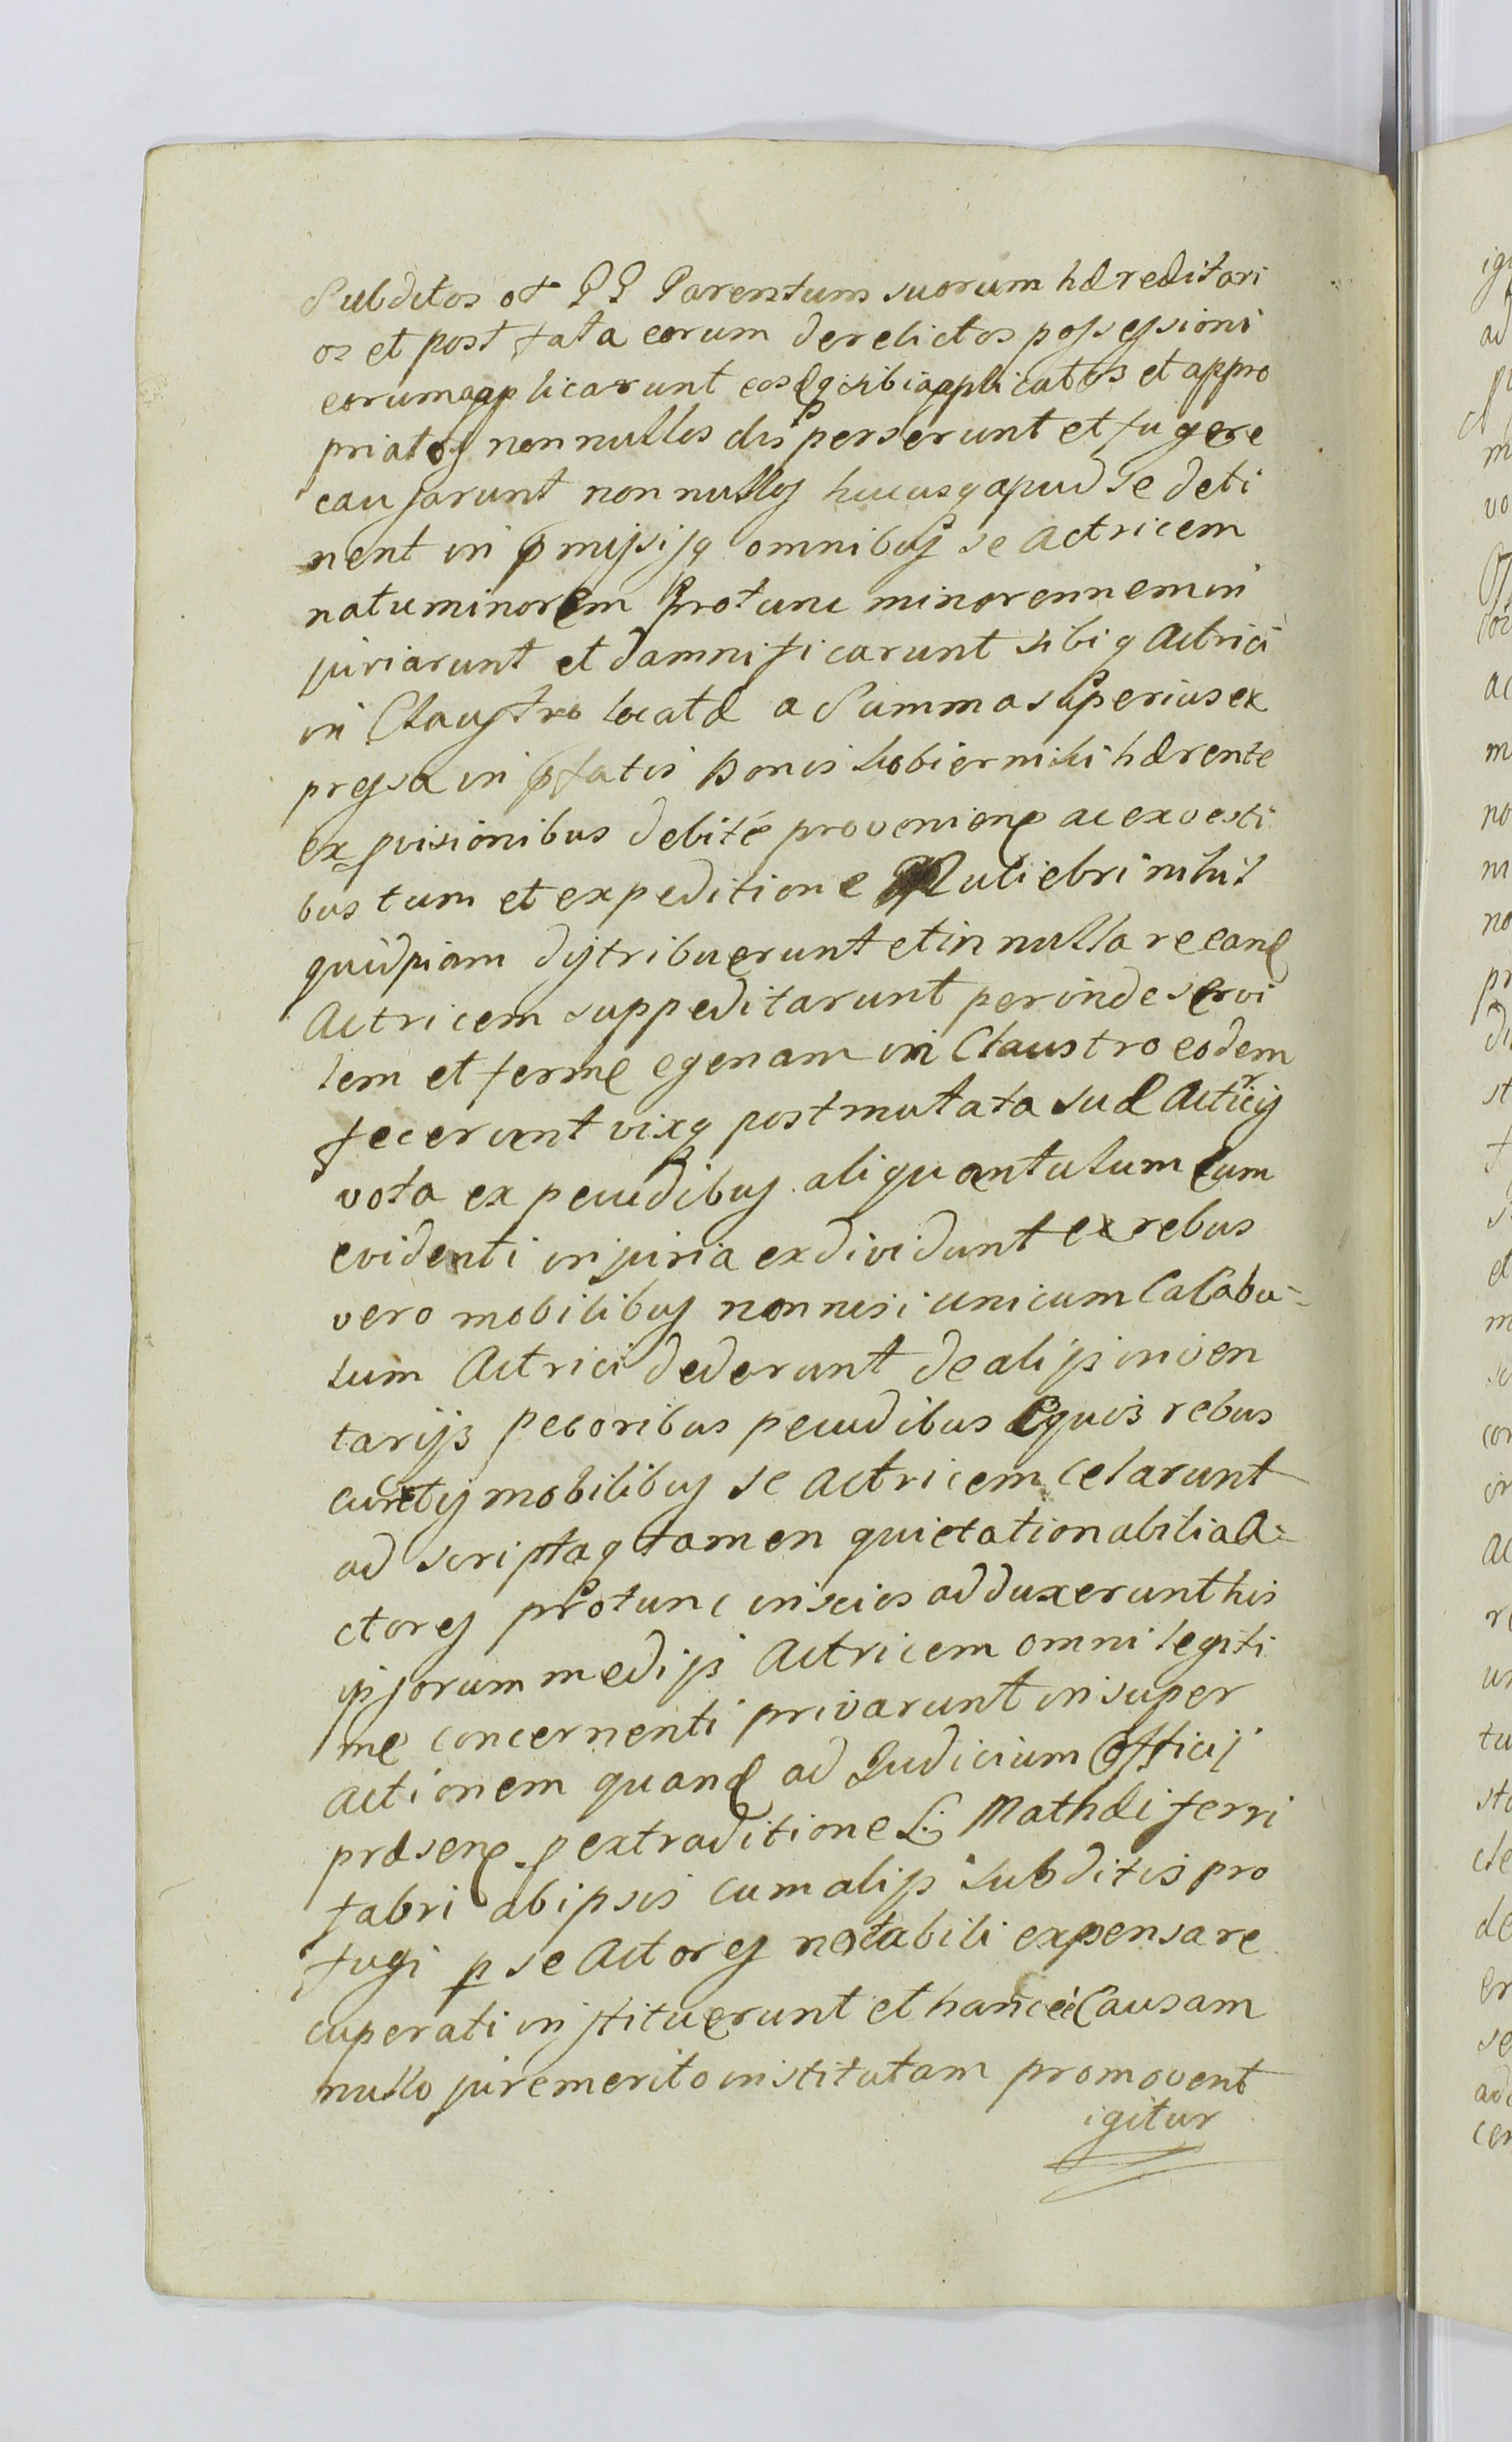 Subditos ot PP Parentum suorum hæreditari
os et post fata eorum derelictos possessioni
eorum applicarunt eosdq sibi applicatos et appro
priatos nonnullos disperserunt et fugere
causarunt nonnullos hucusq apud se deti
nent in pmissisq omnibus se Actricem
natu minorem protunc minorennem in
juriarunt et damnificarunt sibiq Actrici
in Claustro locatæ a Summa superius ex
pressa in pfatis Bonis hærente
ex pvisionibus debité provenien ac ex vesti
bus tum et expeditione Muliebri nihil
quidpiam distribuerunt et in nulla re eand
Actricem suppeditarunt perinde servi
lem et ferme egenam in Claustro eodem
fecerunt vixq post mutata suæ Actricis
vota ex pecudibus aliquantulum cum
evidenti injuria exdividunt ex rebus
vero mobilibus non nisi unicum Cacabu-
lum Actrici dederunt de alijs inven
tarijs pecoribus pecudibus Equis rebus
cunctis mobilibus se Actricem celarunt
ad scriptaq tamen quietationabilia A-
ctores protunc inscios adduxerunt his
ipsorum medijs Actricem omni legiti
me concernenti privarunt insuper
actionem quand ad Judicium Officij
præsen p extraditione L: Mathæi ferri
fabri ab ipsis cum alijs subditis pro
fugi p se Actores notabili expensa re
cuperati instituerunt et hancce Causam
nullo jure merito institutam promovent
igitur